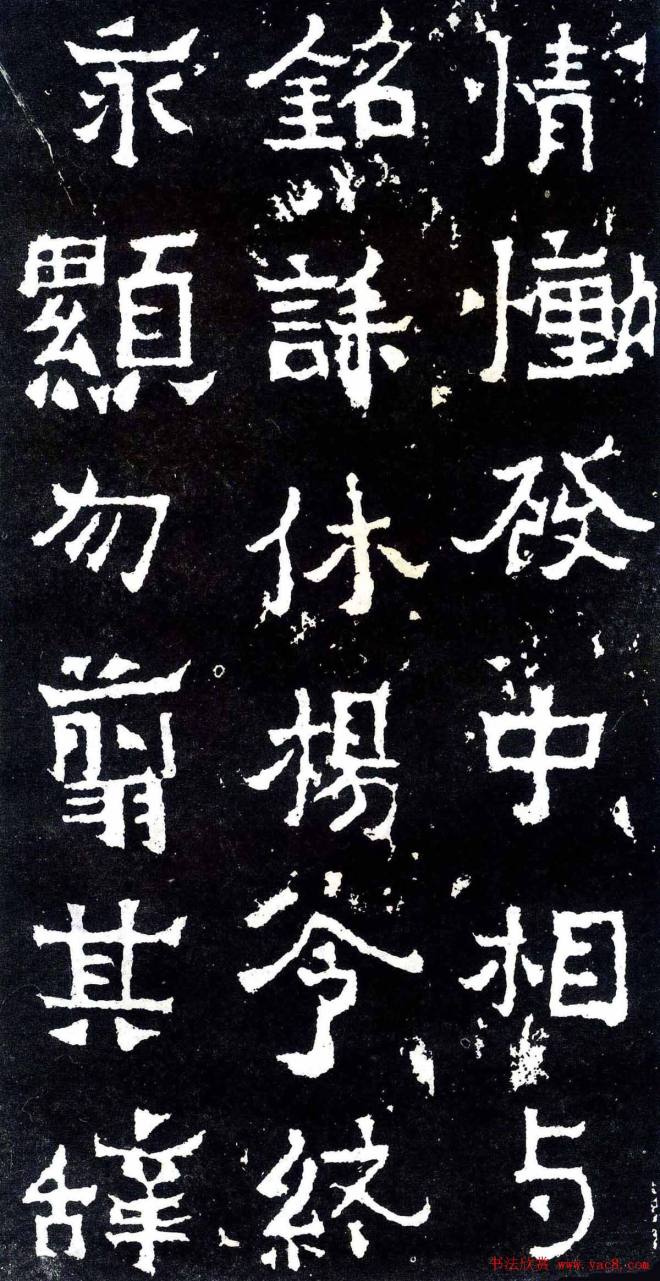 情慟發中相与
銘誄休揚令終
永顯勿翦其辞
书法欣赏 www.yac8.com